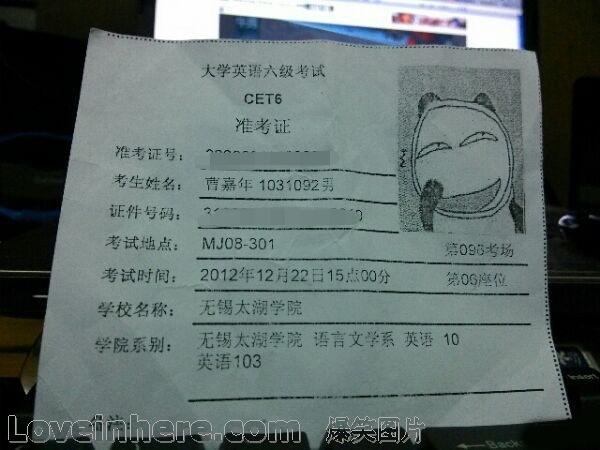 大学英语六级考试
CET6
准考证
准考证号：
考生姓名： 曹嘉年 1031092男
证件号码：
考试地点： MJ08-301 第096考场
考试时间： 2012年12月22日15点00分 第06座位
学校名称： 无锡太湖学院
学院系别： 无锡太湖学院 语言文学系 英语 10
英语103
Insert
Loveinhere.com 爆笑图片
← Back